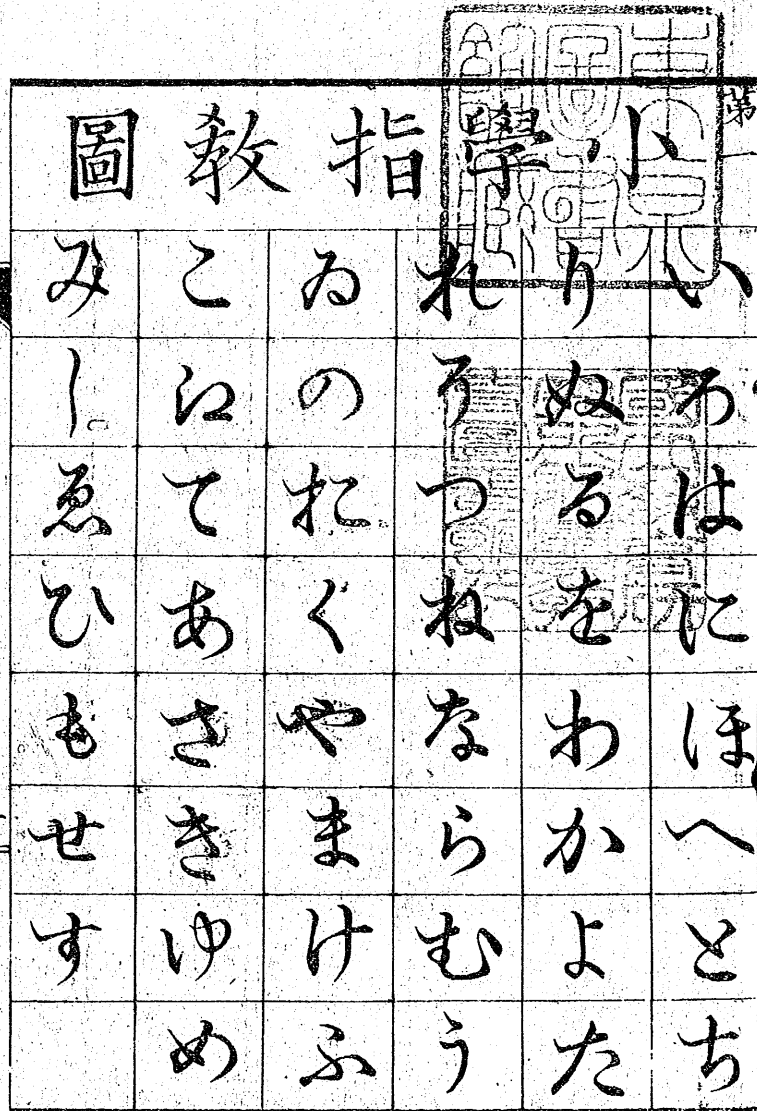 第一
小學指教圖
いろはにほへとち
りぬるをわかよた
れそつねならむう
ゐのおくやまけふ
こえてあさきゆめ
みしゑひもせす